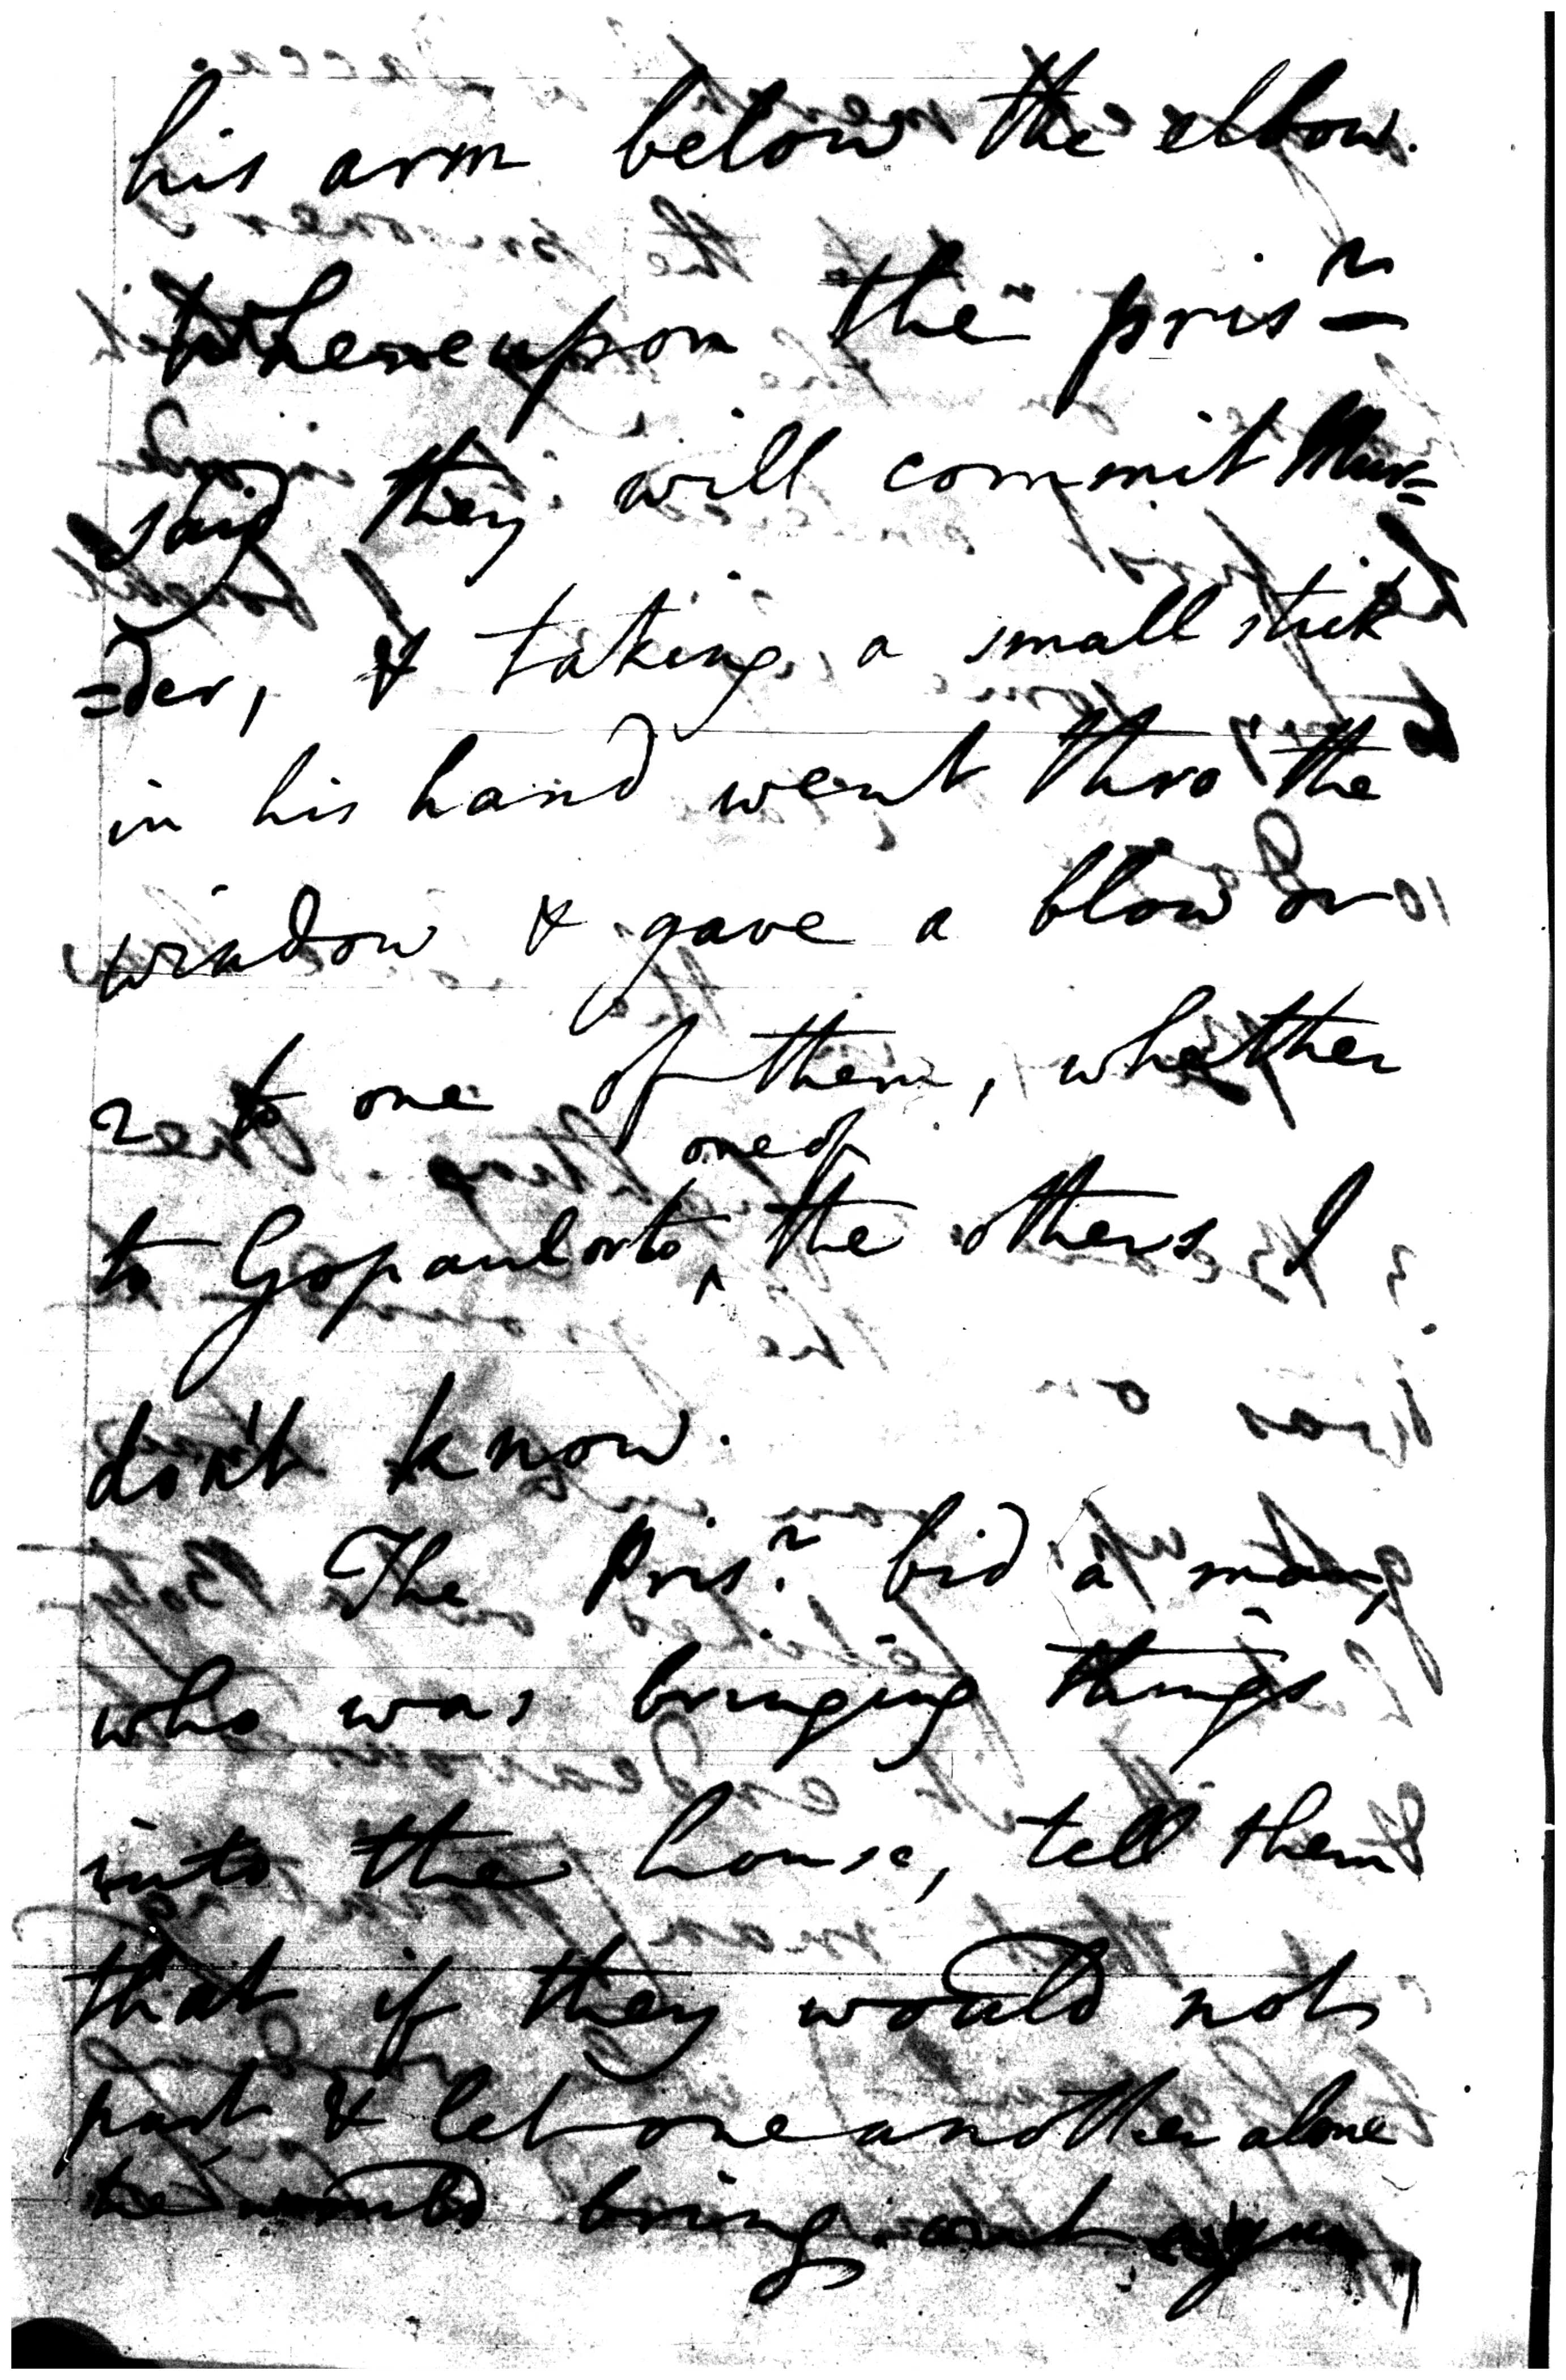 his arm below the elbow.
whereupon the prisr
said they will commit Mur=
=der, & taking a small stick
in his hand went thro' the
window & gave a blow or
2 to one of them, whether
to Gopaul or to one of the others I
don't know.
The Prisr bid a man,
who was bringing things
into the house, tell them
that if they would not
part & let one another alone
he would bring out a gun